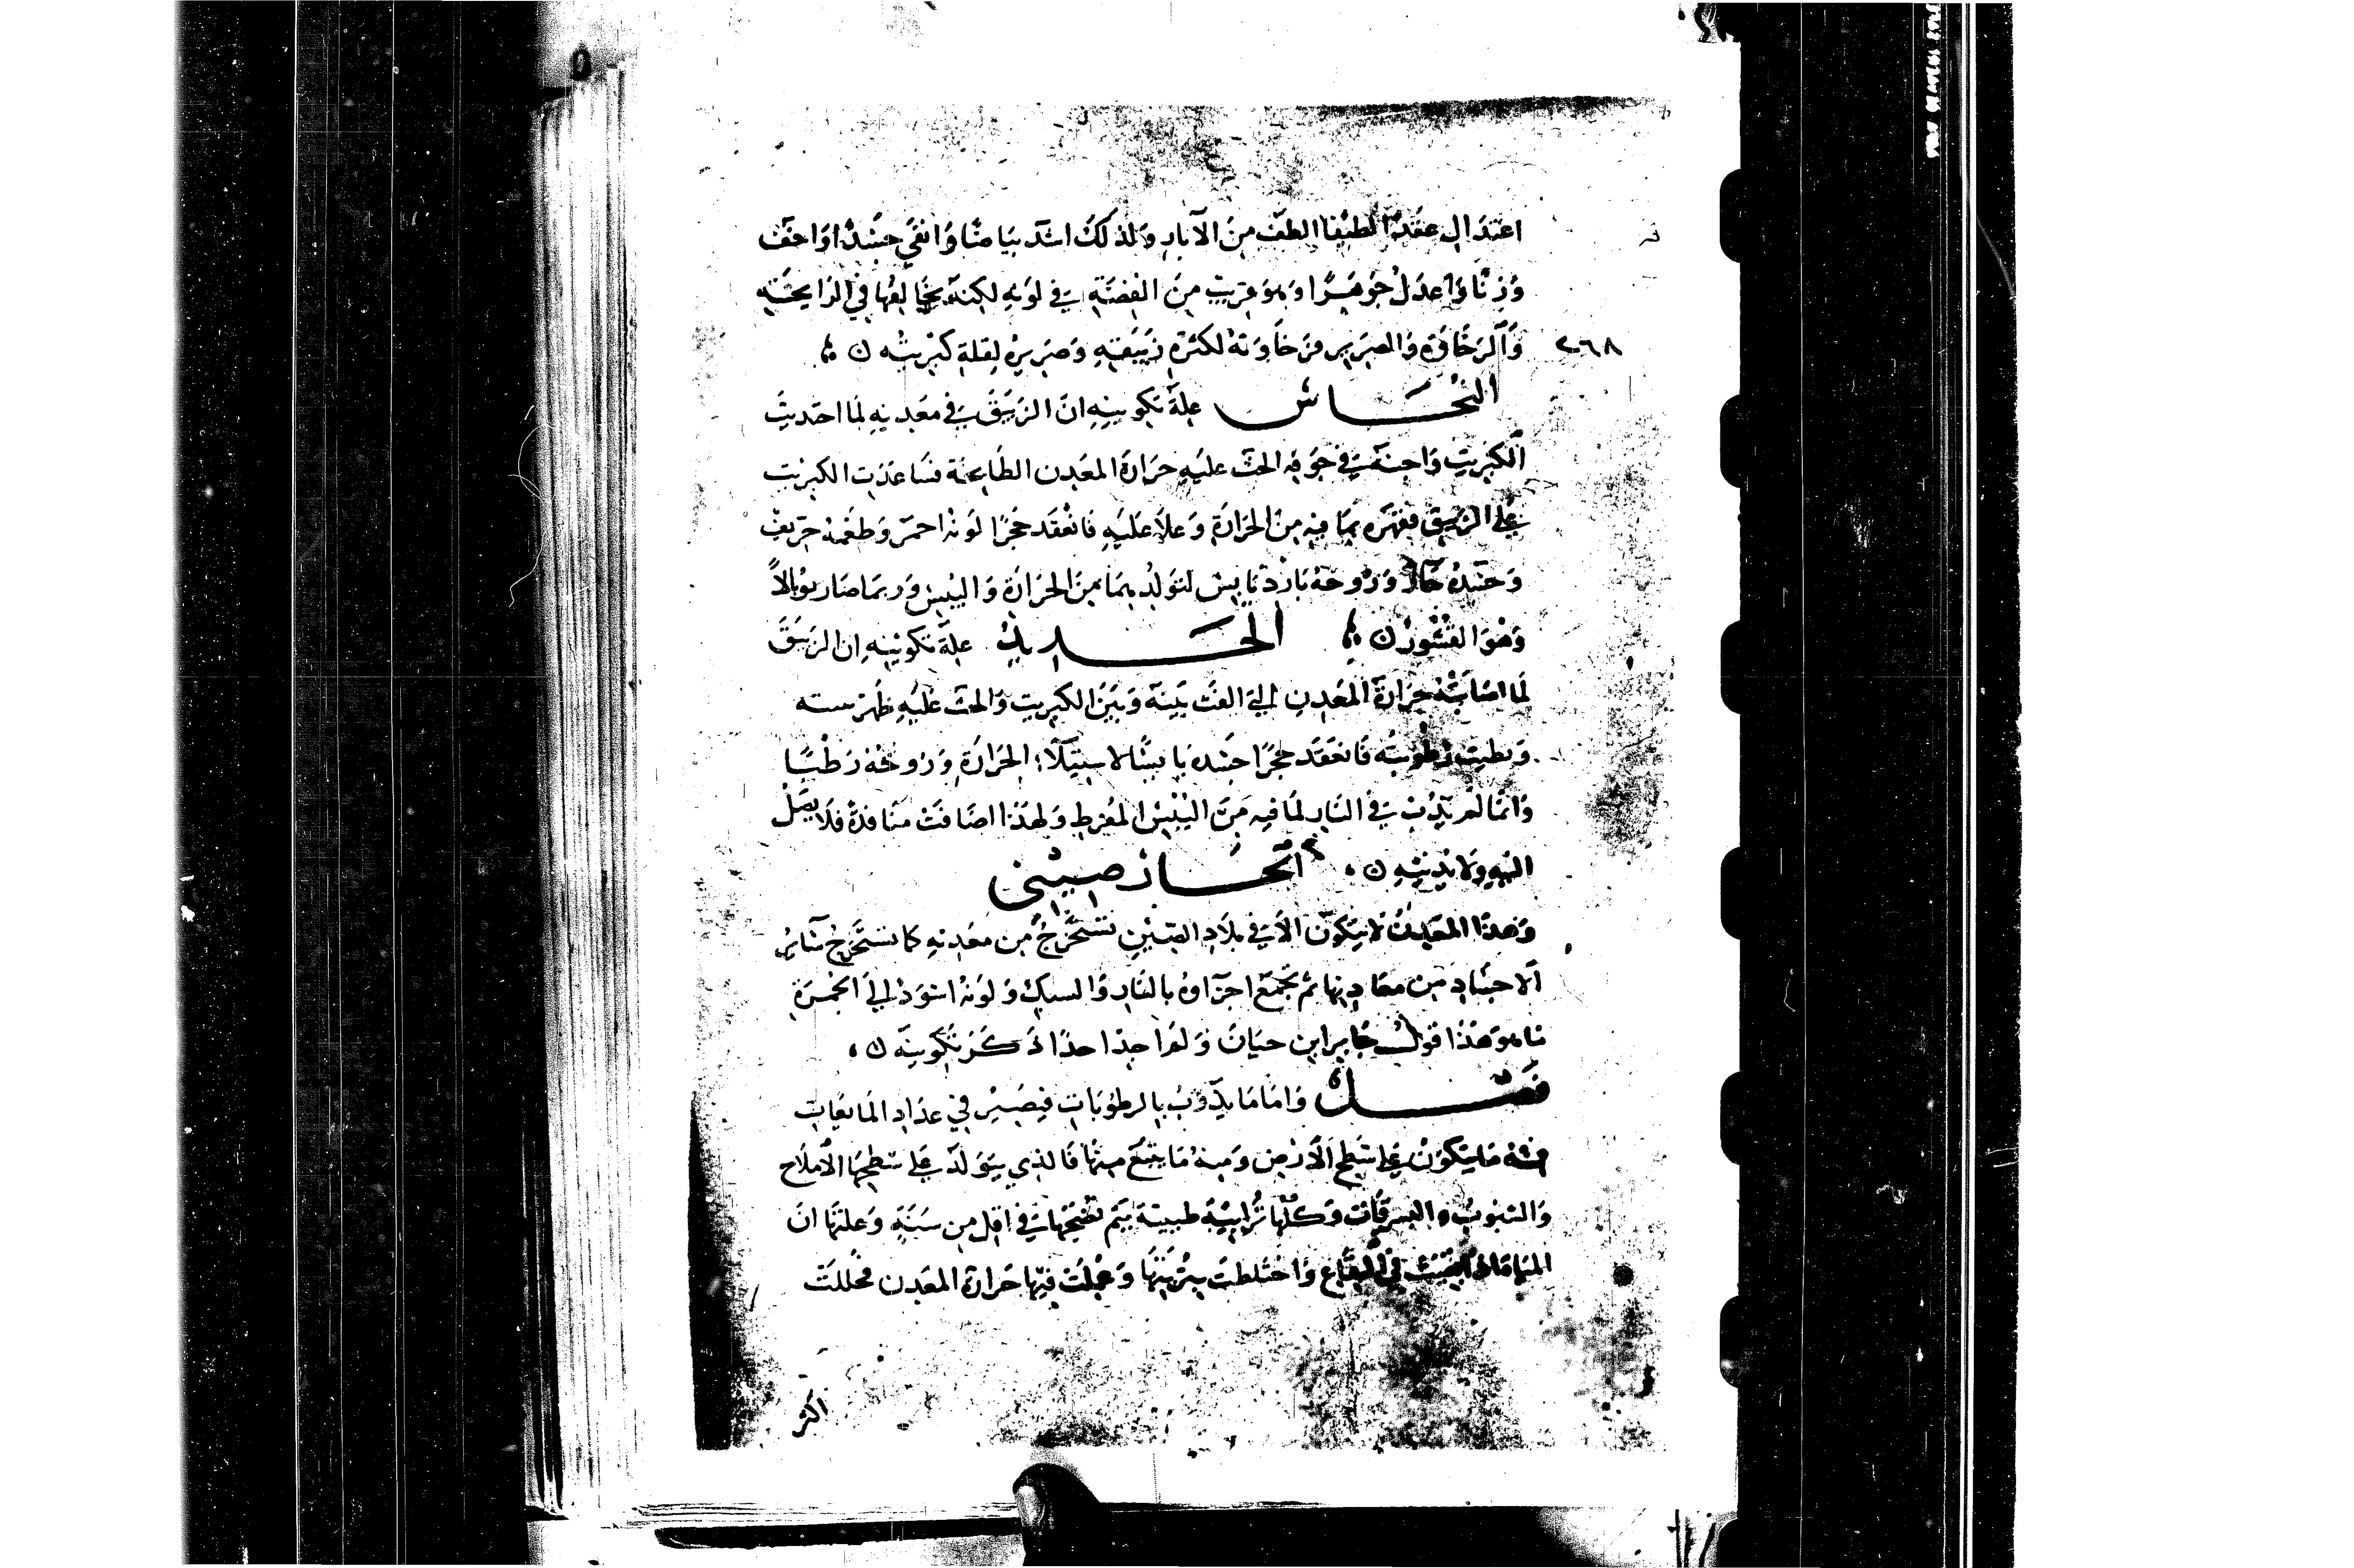 اعتدال عقدا لطيفا الطف من الآبار ولذلك اشد بياضا وانقى جسدا واخف
وزنا واعدل جوهرا وهو قريب من الفضة في لونه لكنه يخالفها في الرايحة
والرخاوة والصرير فرخاوته لكثرة زيبقه وصريره لقلة كبريته ن
٢٦٨
النحاس علة تكوينه ان الزيبق في معدنه لما احدث
الكبريت واجنه في جوفه الحت عليه حرارة المعدن الطابخة فساعدت الكبريت
على الزيبق فقهره بما فيه من الحرارة وعلا عليه فانعقد حجرا لونه احمر وطعمه حريف
وجسده حار وروحه بارد يابس لتولد بما من الحرارة واليبس وربما صار توبالا
وهو القشور ن الحديد علة تكوينه ان الزيبق
لما اصابته حرارة المعدن الي الفت بينه وبين الكبريت والحت عليه ظهر يبسه
وبطنت رطوبته فانعقد حجرا جسده يابسا لاستيلاء الحرارة وروحه رطبا
وانما لم يذب في النار لما فيه من اليبس المفرط ولهذا اضاقت منافذه فلا يصل
اليه ولا يذيبه ن الخارصيني
وهذا المعدن لا يتكون الا في بلاد الصين تستخرج من معدنه كما تستخرج سائر
الاجساد من معادنها ثم تجمع اجزاوه بالنار والسبك ولونه اسود الي الحمرة
ما هو هذا قول جابر ابن حيان ولم اجد احدا ذكر تكوينه ن
فصل واما ما يذوب بالرطوبات فيصير في عداد المايعات
فمنه ما يتكون على سطح الارض ومنه ما ينبع منها فالذي يتولد على سطحها الاملاح
والشبوب والبورقات وكلها ترابية طبيبة يتم نضجها في اقل من سنة وعلتها ان
المياه اذا في البقاع واختلطت بتربتها وعملت فيها حرارة المعدن فحللت
اكثر